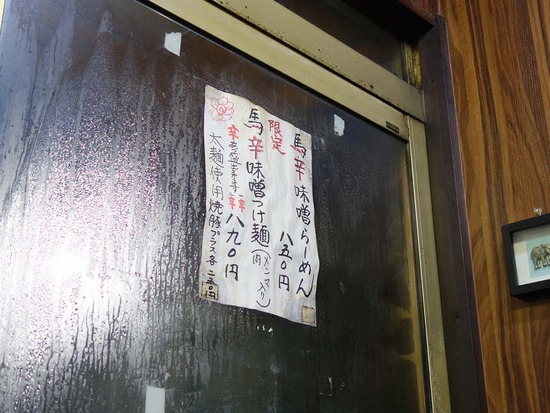 馬辛味噌らーめん
八五〇円
限定
馬辛味噌つけ麺(肉メンマ入り)
八九〇円
太麺使用焼豚プラス各二五〇円